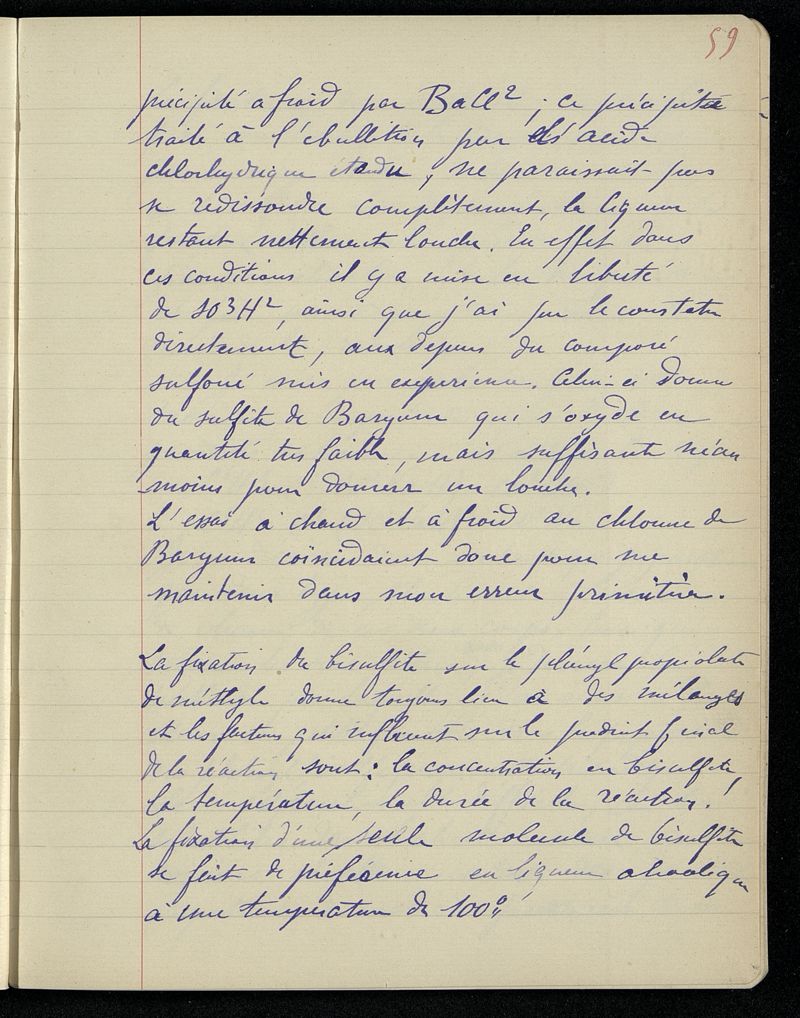 59
précipité a froid par BaCl²; ce précipité
traité à l'ébullition par acide
chlorhydrique étendu, ne paraissait pas
se redissoudre complètement, la liqueur
restant nettement louche. En effet dans
ces conditions il y a mise en liberté
de SO3H², ainsi que j'ai pu le constater
directement, aux depens du composé
sulfoné mis en experience. Celui-ci donne
du sulfite de Baryum qui s'oxyde en
quantité tres faible, mais suffisante néan
moins pour donner un louche.
L'essai à chaud et à froid au chlorure de
Baryum coïncidaient donc pour me
maintenir dans mon erreur primitive.
La fixation du bisulfite sur le phénylpropiolate
de méthyle donne toujours lieu à des mélanges
et les facteurs qui influent sur le produit final
de la réaction sont: la concentration en bisulfite,
la température, la durée de la réaction.
La fixation d'une seule molecule de bisulfite
se fait de préférence en liqueur alcoolique
à une temperature de 100°